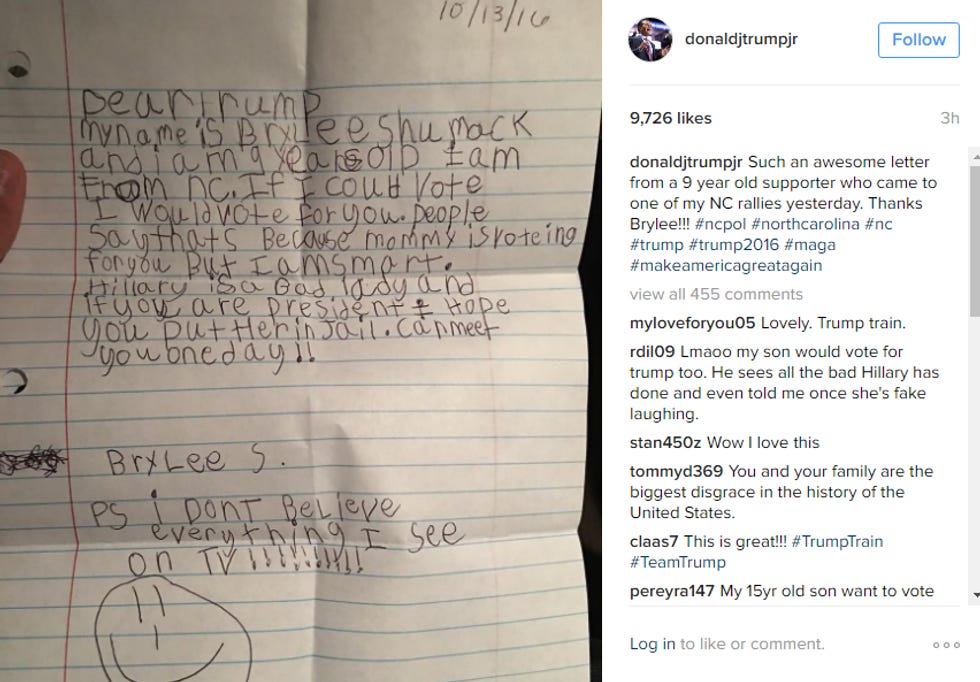 10/13/16
Dear trump
my name is BryLee shumack
and i am 9 years old I am
From nc. If I coud Vote
I would vote for you. people
Say thats Because mommy is voteing
for you But I am smart.
Hillary is a Bad lady and
if you are president I Hope
you put Her in Jail. can meet
you one day!!
BryLee S.
PS i Dont Believe
everything I see
on TV!!!!!!!!!!
donaldjtrumpjr
Follow
9,726 likes
3h
donaldjtrumpjr Such an awesome letter
from a 9 year old supporter who came to
one of my NC rallies yesterday. Thanks
Brylee!!! #ncpol #northcarolina #nc
#trump #trump2016 #maga
#makeamericagreatagain
view all 455 comments
myloveforyou05 Lovely. Trump train.
rdil09 Lmaoo my son would vote for
trump too. He sees all the bad Hillary has
done and even told me once she's fake
laughing.
stan450z Wow I love this
tommyd369 You and your family are the
biggest disgrace in the history of the
United States.
claas7 This is great!!! #TrumpTrain
#TeamTrump
pereyra147 My 15yr old son want to vote
Log in to like or comment.